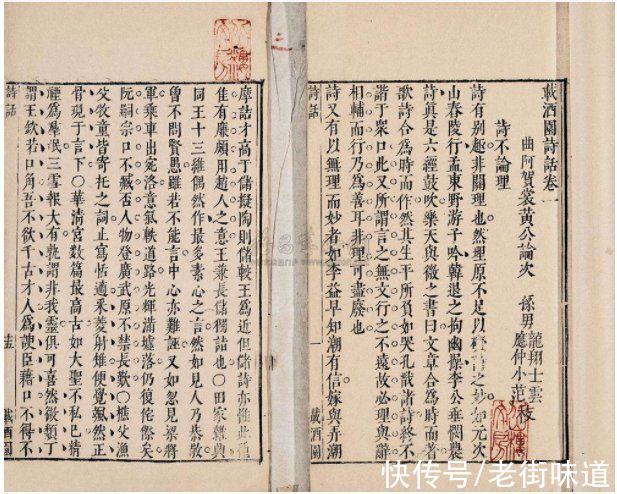 載酒園詩話卷一
曲阿賀裳黃公論次 孫男 龍翔士雲 應仲小范 校
詩不論理
詩有別趣非關理也然理原不足以礙詩之妙如元次
山舂陵行孟東野游子吟韓退之拘幽操李公垂憫農
詩眞是六經鼓吹樂天與微之書曰文章合爲時而著
歌詩合爲時而作然其生平所負如哭孔戡諸詩終不
諧于衆口此又所謂言之無文行之不遠故必理與辭
相輔而行乃爲善耳非理可盡廢也
詩又有以無理而妙者如李益早知潮有信嫁與弄潮
詩話 一 載酒園
摩詰才高于儲擬陶則儲較王爲近但儲詩亦惟此種
佳有廉頗用趙人之意王兼長儲獨詣也○田家雜興
同王十三維偶然作最多素心之言然如見人乃恭敬
曾不問賢愚雖若不能言中心亦難誣又如忽見梁將
軍乘車出宛洛意氣軼道路光輝滿墟落仍復侘傺矣
阮嗣宗口不臧否人物登廣武原不禁長歎○樵父漁
父牧童皆寄托之詞止寫恬適釆菱射雉便覺颯然正
骨現于言下○華清宮數篇最高古如大聖不私己精
禋爲羣氓三雪報大有孰謂非我靈俱可喜然微類丁
謂王欽若口角吾不欲千古才人爲諛臣藉口不得不
詩話 載酒園
快传号/老街味道